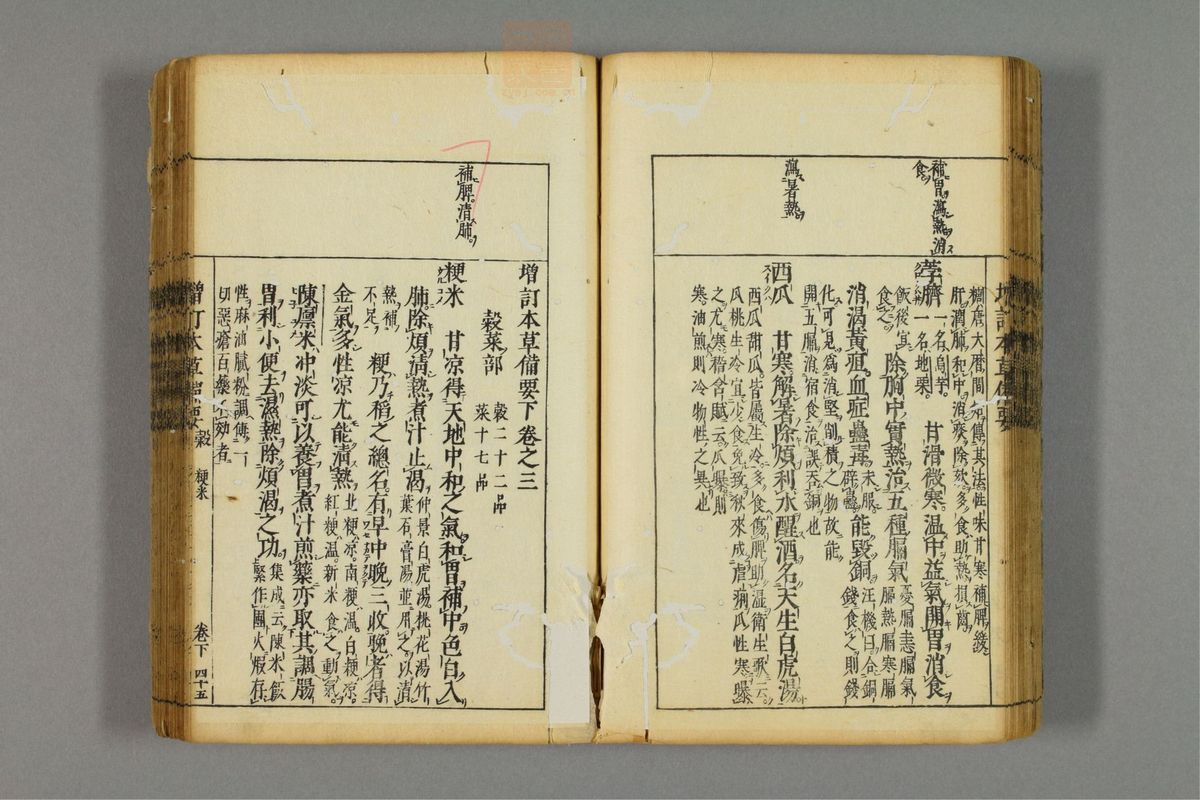 補胃瀉熱消
食
糖唐大暦間有傳其法性味甘寒補脾緩
肝潤肺和中消痰除欬多食助熱損齒
荸臍
一名烏芋
一名地栗
甘滑微寒温中益氣開胃消食
飯後宜
食之
除胸中實熱治五種膈氣
憂膈恚膈氣
膈熱膈寒膈
消渴黄疸血症蠱毒
未服
辟蠱
能毀銅
汪機曰合銅
錢食之則錢
化可見為消堅削積之物故能
開五膈消宿食治誤呑銅也
瀉暑熱
西瓜 甘寒解暑除煩利水醒酒名天生白虎湯
西瓜甜瓜皆屬生冷多食傷脾助湿衛生歌云
瓜桃生冷宜少食免致秋來成虐痢瓜性寒曝
之尤寒稽含賦云瓜曝則
寒油煎則冷物性之異也
増訂本草備要下卷之三
穀菜部
穀二十二品
菜十七品
補脾清肺
粳米 甘凉得天地中和之氣和胃補中色白入
肺除煩清熱煮汁止渴
仲景白虎湯桃花湯竹
葉石膏湯並用之以清
熱補
不足
粳乃稻之總名有早中晚三收晚者得
金氣多性凉尤能清熱
北粳凉南粳温白粳凉
紅粳温新米食之動氣
陳廩米冲淡可以養胃煮汁煎藥亦取其調腸
胃利小便去濕熱除煩渴之功
集成云陳米飲
緊作團火煆存
性麻油膩粉調傅一
切惡瘡百藥不効者
増訂本草備要 穀 粳米 卷下 四十五